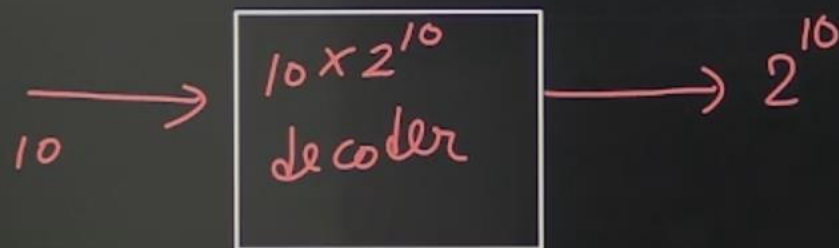 10
10 × 2^10
decoder
2^10